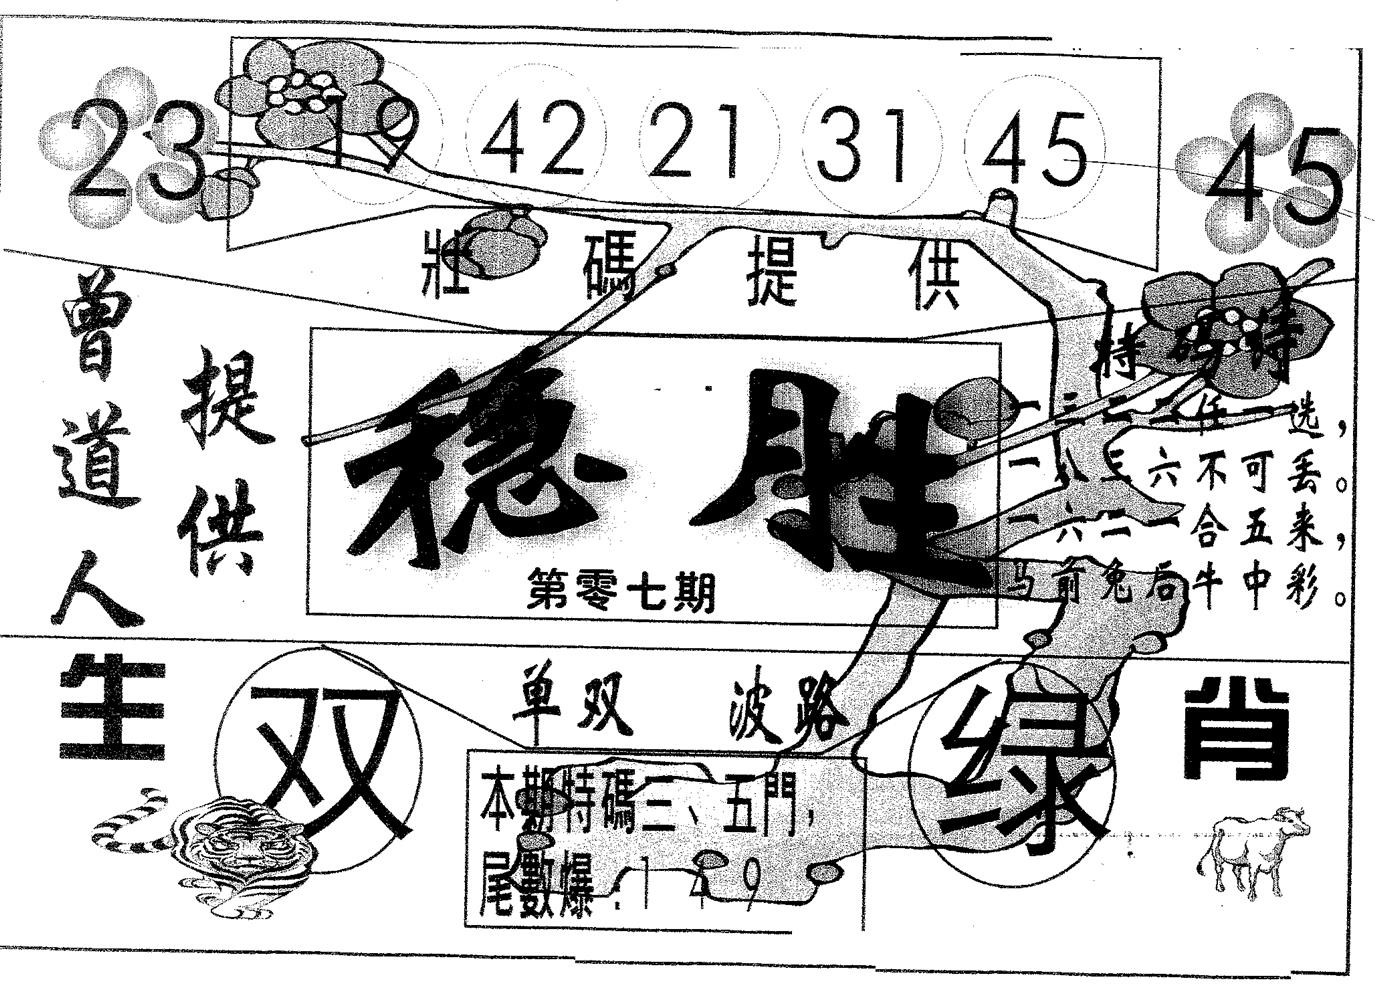 23 19 42 21 31 45 45
壯碼提供
曾道人
提供
稳胜
第零七期
特码诗
一三二二任一选，
一八三六不可丢。
一六二一合五来，
马前兔后牛中彩。
生肖
双
单双 波路
绿
本期特碼三、五門，
尾數爆：1 4 9